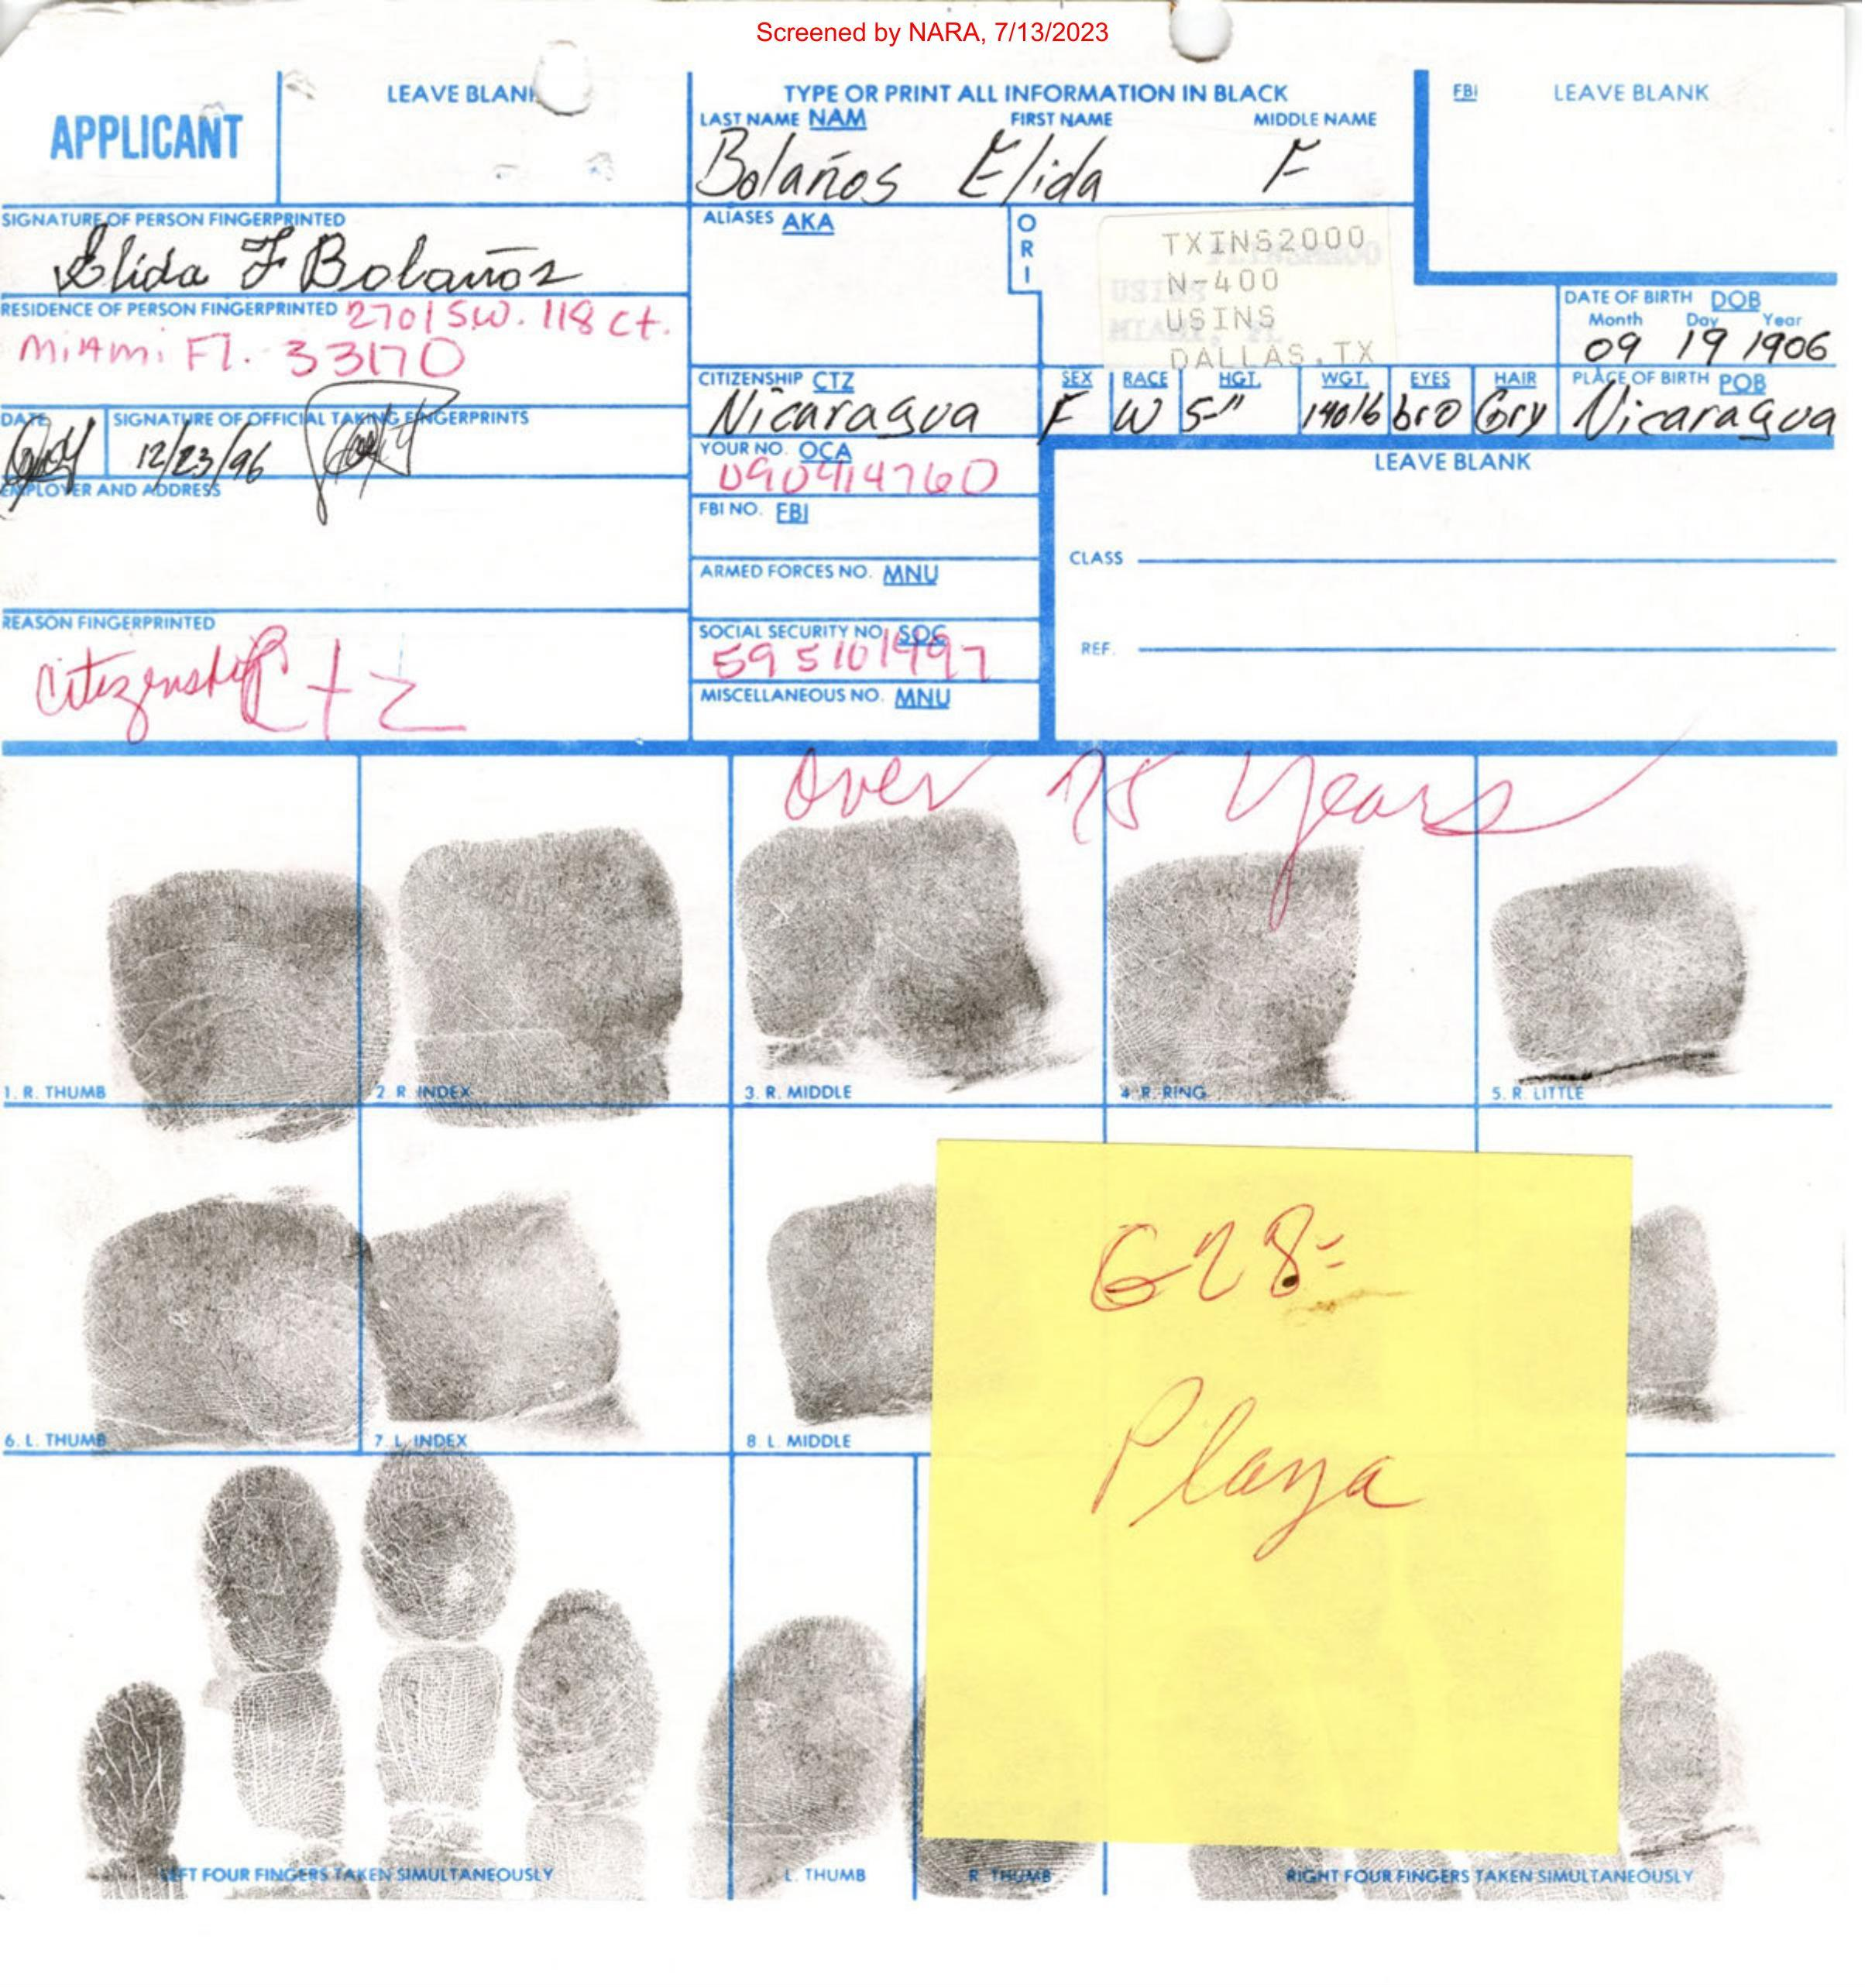 Screened by NARA, 7/13/2023
APPLICANT
LEAVE BLANK
TYPE OR PRINT ALL INFORMATION IN BLACK
LAST NAME NAM FIRST NAME MIDDLE NAME
Bolaños Elida F
FBI LEAVE BLANK
SIGNATURE OF PERSON FINGERPRINTED
Elida F Bolaños
ALIASES AKA
ORI
TXINS2000
N-400
USINS
DALLAS, TX
RESIDENCE OF PERSON FINGERPRINTED 2701 SW. 118 Ct.
Miami Fl. 33170
DATE OF BIRTH DOB
Month Day Year
09 19 1906
CITIZENSHIP CTZ
Nicaragua
SEX RACE HGT. WGT. EYES HAIR
F W 5-" 140lb bro Gry
PLACE OF BIRTH POB
Nicaragua
DATE SIGNATURE OF OFFICIAL TAKING FINGERPRINTS
12/23/96
YOUR NO. OCA
090914760
LEAVE BLANK
EMPLOYER AND ADDRESS
FBI NO. FBI
CLASS
ARMED FORCES NO. MNU
REASON FINGERPRINTED
citizenship Ctz
SOCIAL SECURITY NO. SOC
595101997
REF.
MISCELLANEOUS NO. MNU
Over 75 years
1. R. THUMB 2. R. INDEX 3. R. MIDDLE 4. R. RING 5. R. LITTLE
6. L. THUMB 7. L. INDEX 8. L. MIDDLE
G28-
Playa
LEFT FOUR FINGERS TAKEN SIMULTANEOUSLY L. THUMB R. THUMB RIGHT FOUR FINGERS TAKEN SIMULTANEOUSLY